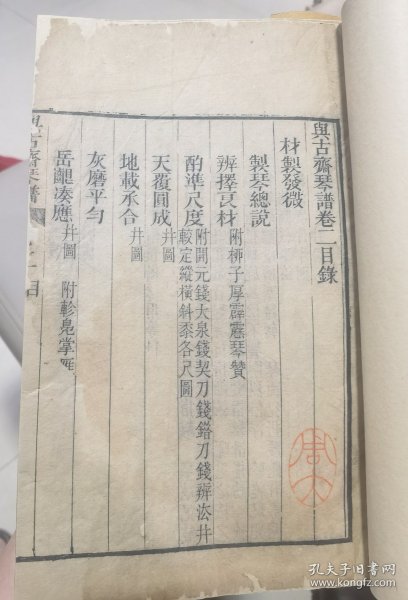 與古齋琴譜卷二目錄
材製發微
製琴總說
辨擇良材 附柳子厚霹靂琴贊
酌準尺度 附開元錢大泉錢契刀錢錯刀錢辨法并
較定縱橫斜黍各尺圖
天覆圓成 并圖
地載承合 并圖
灰磨平勻
岳齦湊應 并圖 附軫鳧掌
與古齋琴譜
孔夫子旧书网
https://book.kongfz.com/